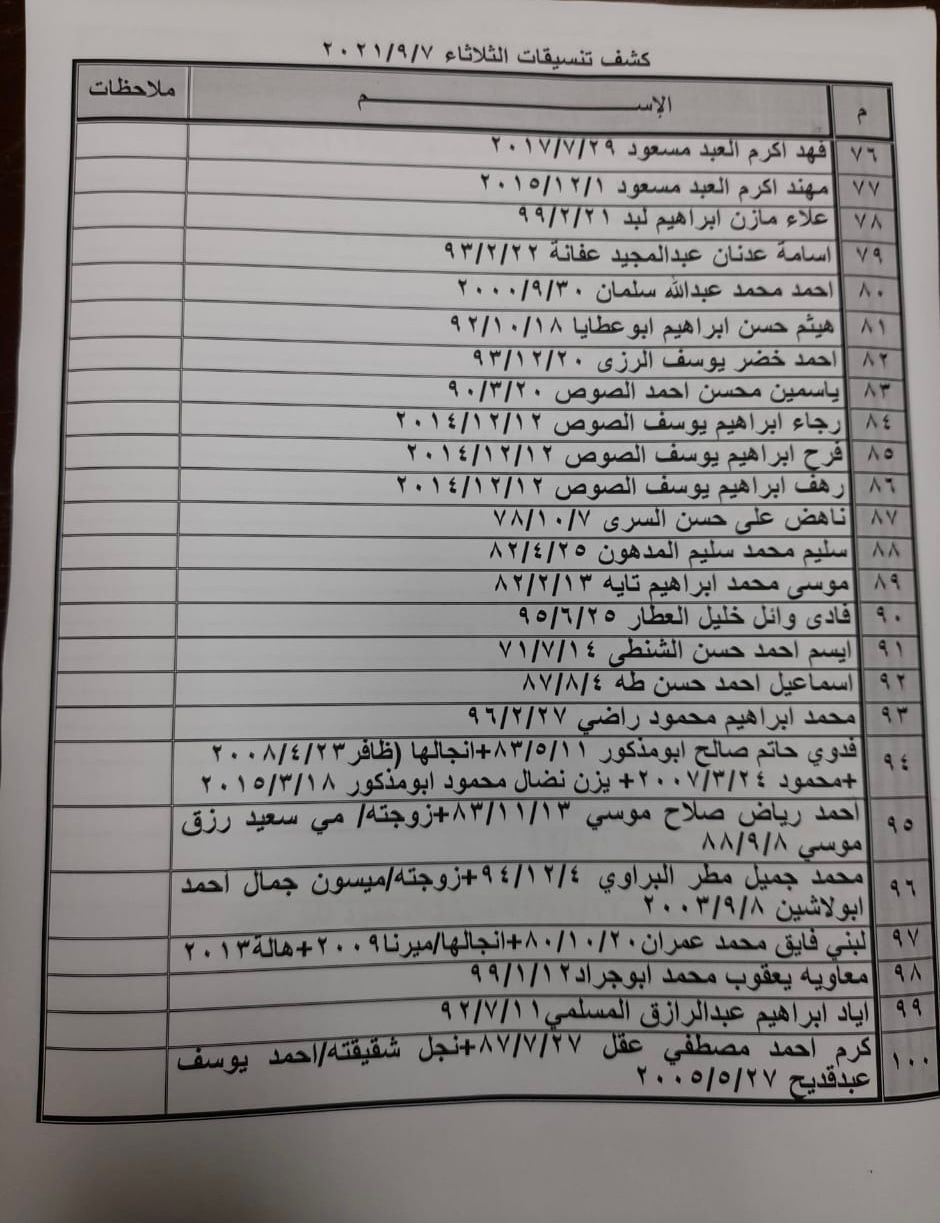 كشف تنسيقات الثلاثاء ٢٠٢١/٩/٧
م الإســـــــــم ملاحظات
٧٦ فهد اكرم العبد مسعود ٢٠١٧/٧/٢٩
٧٧ مهند اكرم العبد مسعود ٢٠١٥/١٢/١
٧٨ علاء مازن ابراهيم لبد ٩٩/٢/٢١
٧٩ اسامة عدنان عبدالمجيد عفانة ٩٣/٢/٢٢
٨٠ احمد محمد عبدالله سلمان ٢٠٠٠/٩/٣٠
٨١ هيثم حسن ابراهيم ابوعطايا ٩٢/١٠/١٨
٨٢ احمد خضر يوسف الرزى ٩٣/١٢/٢٠
٨٣ ياسمين محسن احمد الصوص ٩٠/٣/٢٠
٨٤ رجاء ابراهيم يوسف الصوص ٢٠١٤/١٢/١٢
٨٥ فرح ابراهيم يوسف الصوص ٢٠١٤/١٢/١٢
٨٦ رهف ابراهيم يوسف الصوص ٢٠١٤/١٢/١٢
٨٧ ناهض على حسن السرى ٧٨/١٠/٧
٨٨ سليم محمد سليم المدهون ٨٢/٤/٢٥
٨٩ موسى محمد ابراهيم تايه ٨٢/٢/١٣
٩٠ فادى وائل خليل العطار ٩٥/٦/٢٥
٩١ ايسم احمد حسن الشنطى ٧١/٧/١٤
٩٢ اسماعيل احمد حسن طه ٨٧/٨/٤
٩٣ محمد ابراهيم محمود راضي ٩٦/٢/٢٧
٩٤ فدوي حاتم صالح ابومذكور ٨٣/٥/١١+انجالها (ظافر٢٠٠٨/٤/٢٣
+محمود ٢٠٠٧/٣/٢٤+ يزن نضال محمود ابومذكور ٢٠١٥/٣/١٨
٩٥ احمد رياض صلاح موسي ٨٣/١١/١٣+زوجته/ مي سعيد رزق
موسي ٨٨/٩/٨
٩٦ محمد جميل مطر البراوي ٩٤/١٢/٤+زوجته/ميسون جمال احمد
ابولاشين ٢٠٠٣/٩/٨
٩٧ لبني فايق محمد عمران٨٠/١٠/٢٠+انجالها/ميرنا٢٠٠٩+هالة٢٠١٣
٩٨ معاويه يعقوب محمد ابوجراد٩٩/١/١٢
٩٩ اياد ابراهيم عبدالرازق المسلمي٩٢/٧/١١
١٠٠ كرم احمد مصطفي عقل ٨٧/٧/٢٧+نجل شقيقته/احمد يوسف
عبدقديح ٢٠٠٥/٥/٢٧